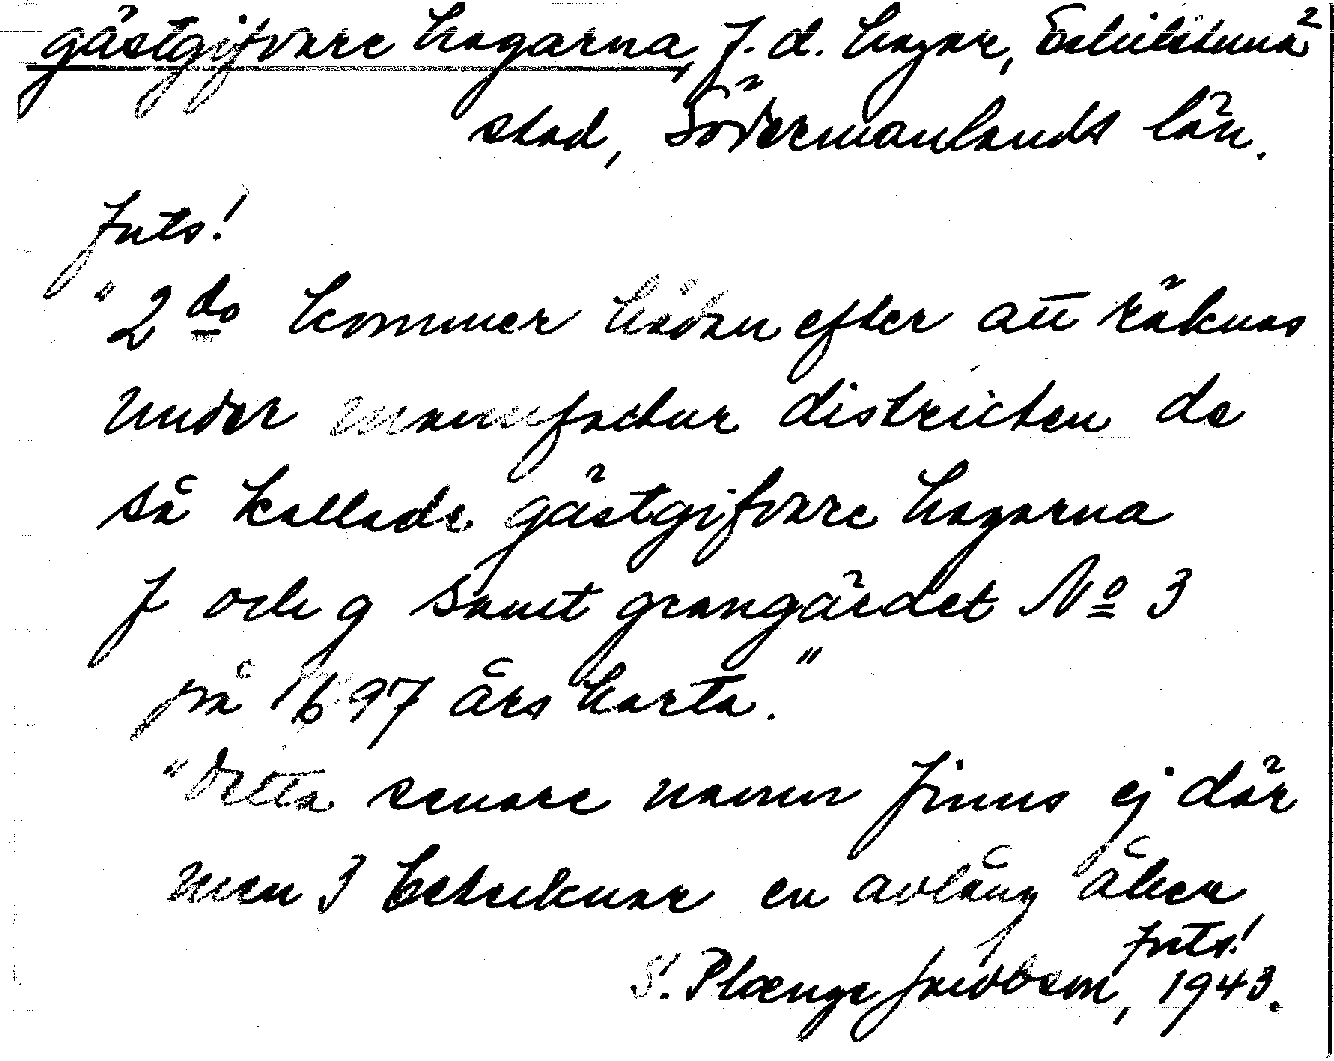 gästgifvare hagarna, f. d. hagar, Eskilstuna 2
stad, Södermanlands län.
forts!
"2do kommer hädan efter att räknas
under manufactur districten de
så kallade gästgifvare hagarna
f och g samt grangärdet No 3
på 1697 års karta."
"Detta senare namn finns ej där
men 3 betecknar en avlång åker
forts!
S. Plænge Jacobson, 1943.